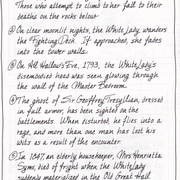 Those who attempt to climb to her fall to their
deaths on the rocks below.
② On clear moonlit nights, the White Lady wanders
the Fighting Deck. If approached, she fades
into the tower walls.
③ On All Hallow's Eve, 1793, the White Lady's
disembodied head was seen glowing through
the wall of the Master Bedroom.
④ The ghost of Sir Geoffrey Tresyllian, dressed
in full armor, has been sighted on the
battlements. When disturbed, he flies into a
rage, and more than one man has lost his
wits as a result of the encounter.
⑤ In 1847, an elderly housekeeper, Mrs. Henrietta
Syms, died of fright when the White Lady
suddenly materialized in the Old Great Hall